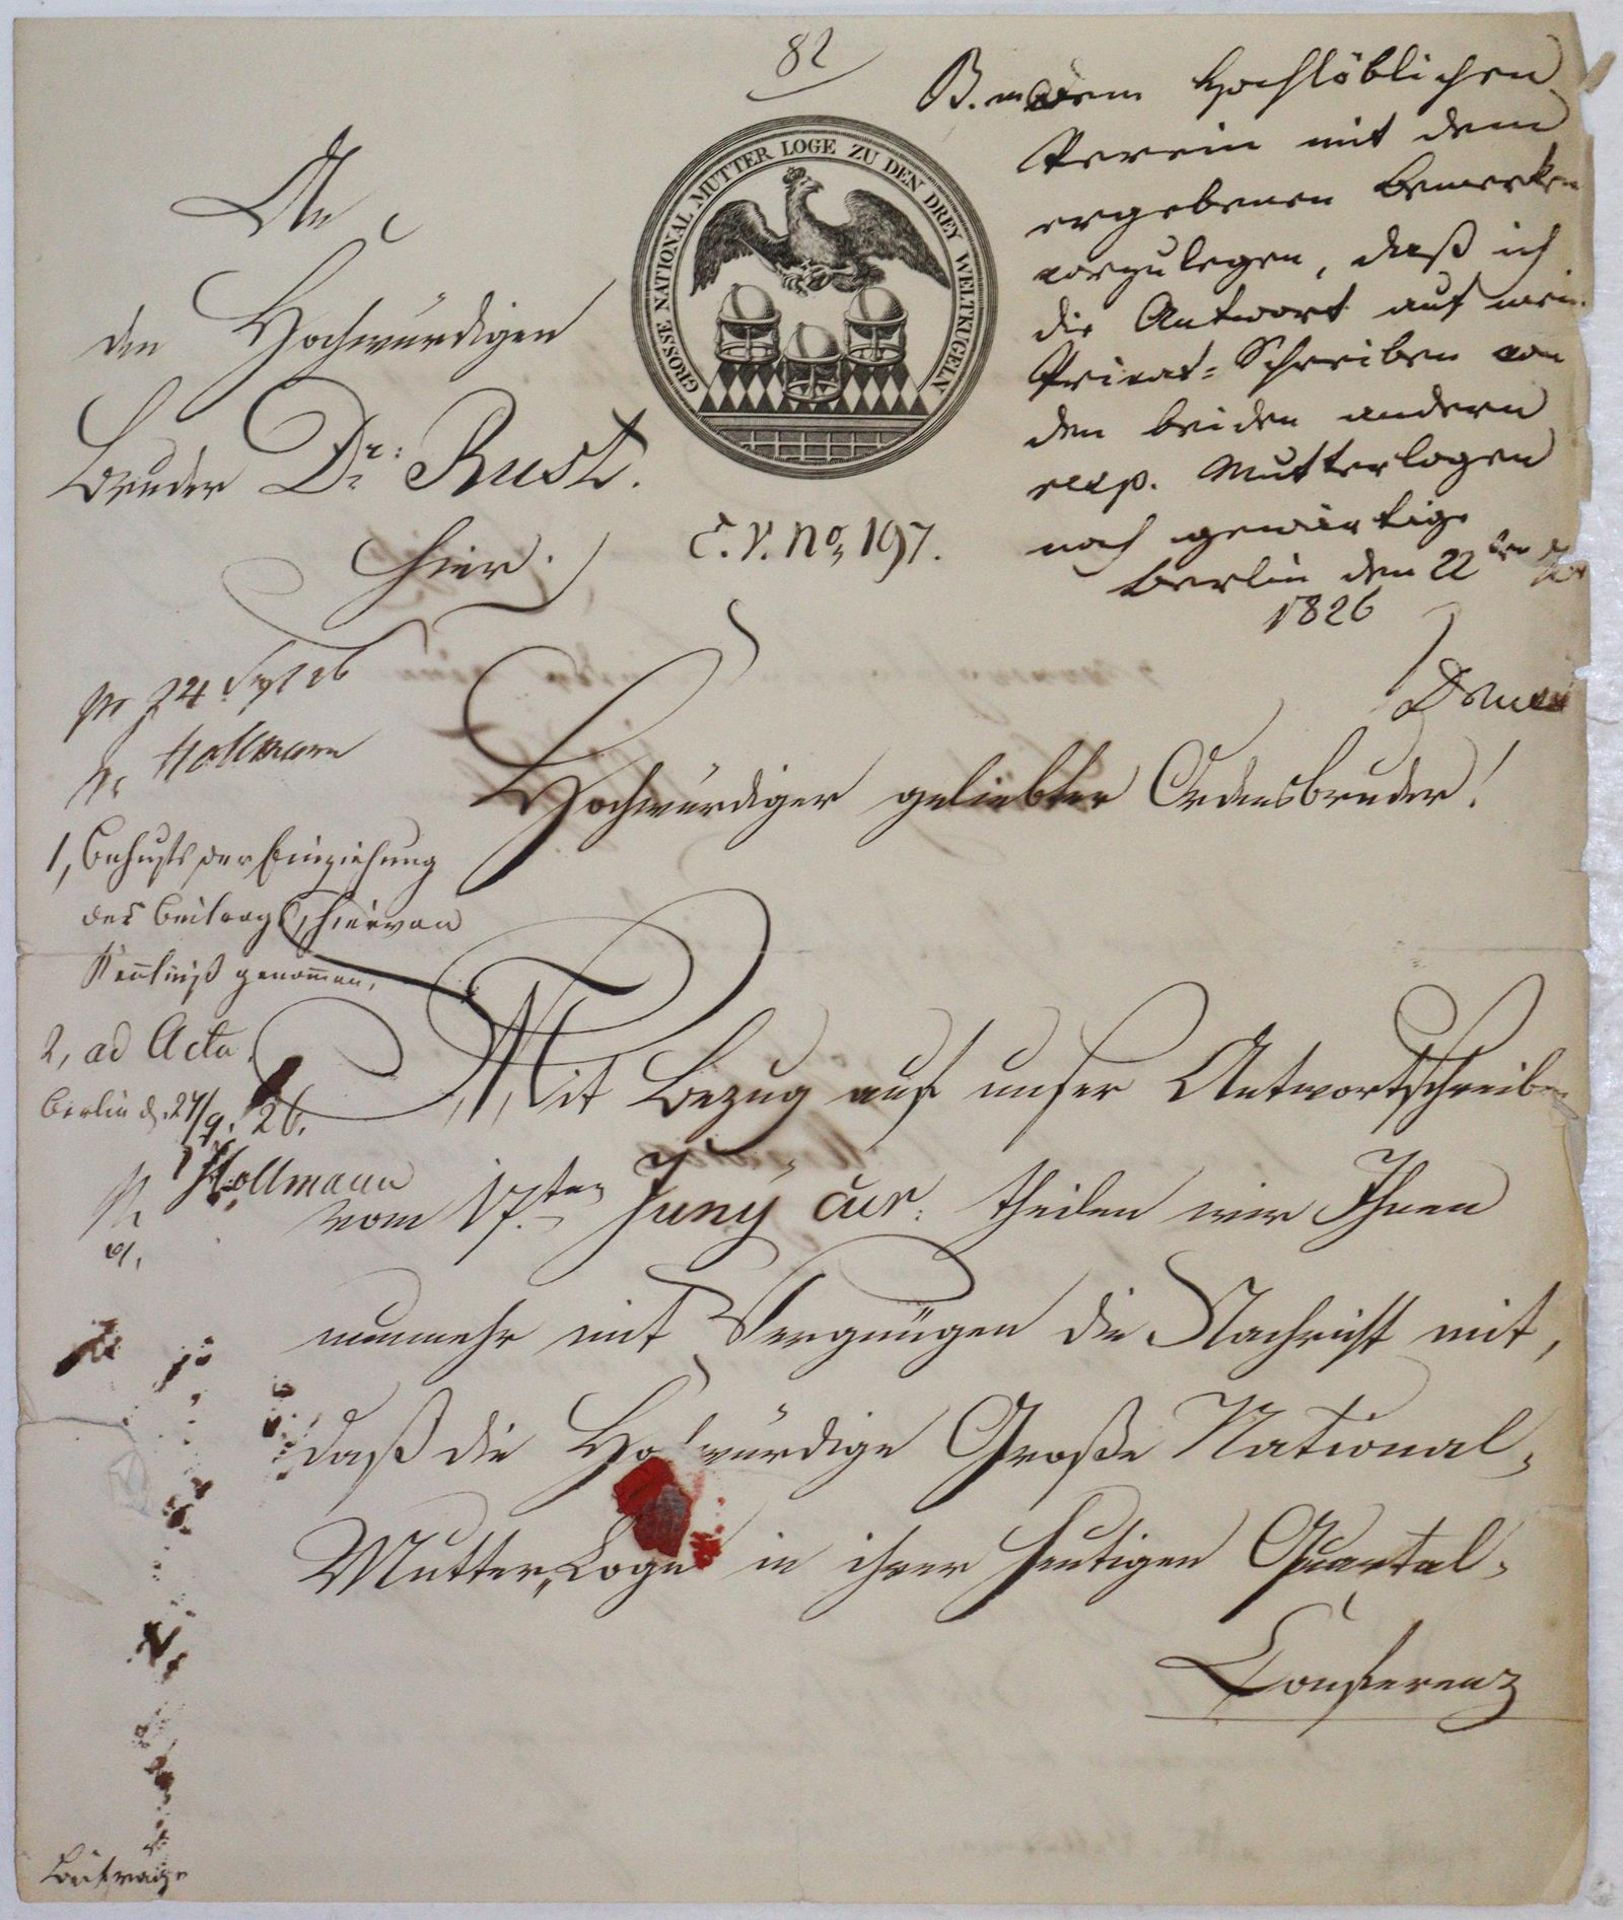 82
GROSSE NATIONAL MUTTER LOGE ZU DEN DREY WELTKUGELN
An
den Hochwürdigen
Bruder Dr. Rust.
hier.
C. V. No. 197.
dem Hochlöblichen
Verein mit dem
ergebenen Bemerken
vorzulegen, daß ich
die Antwort auf mein
Privat-Schreiben von
den beiden andern
resp. Mutterlogen
noch gewärtige
Berlin den 22ten
1826
24 Sept 26
Hollmann
Hochwürdiger geliebter Ordensbruder!
1, Behufs der Einziehung
des Beitrags hiervon
Kentniß genomen.
2, ad Acta
Berlin d. 27/9. 26.
Hollmann
Mit Bezug auf unser Antwortschreiben
vom 17.ten Juny cur: theilen wir Ihnen
nunmehr mit Vergnügen die Nachricht mit,
daß die Hochwürdige Große National-
Mutter-Loge in ihrer heutigen Quartal-
Conferenz
Beiträge